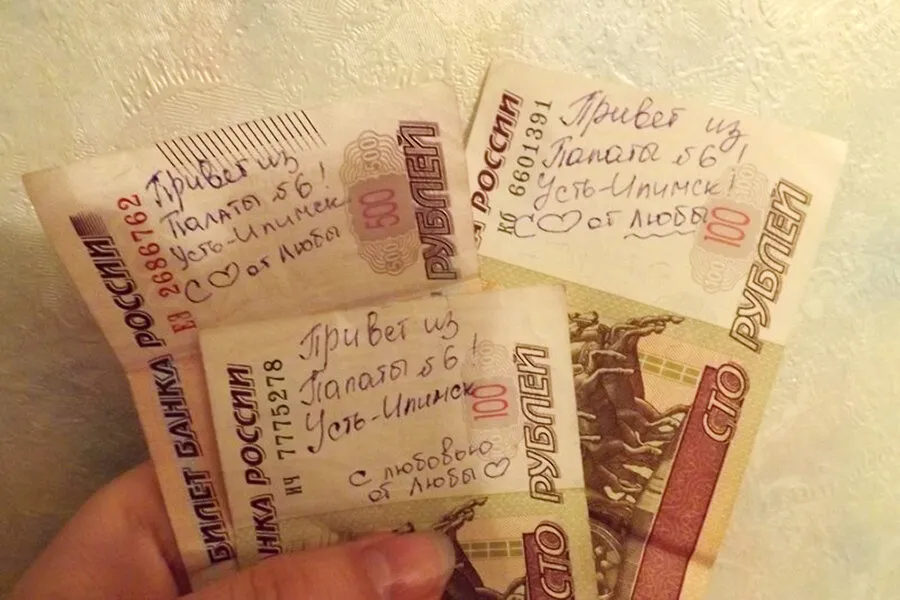 Привет из
Палаты №6!
Усть-Илимск
С ♡ от Любы
500
500
500
РУБЛЕЙ
ЕЭ 2686762
БИЛЕТ БАНКА РОССИИ
Привет из
Палаты №6!
Усть-Илимск!
С ♡ от Любы
100
РУБЛЕЙ
СТО
Кб 6601391
А РОССИИ
Привет из
Палаты №6!
Усть-Илимск
С любовью
от Любы ♡
100
РУБЛЕЙ
СТО
ИЧ 7775278
НКА РОССИИ